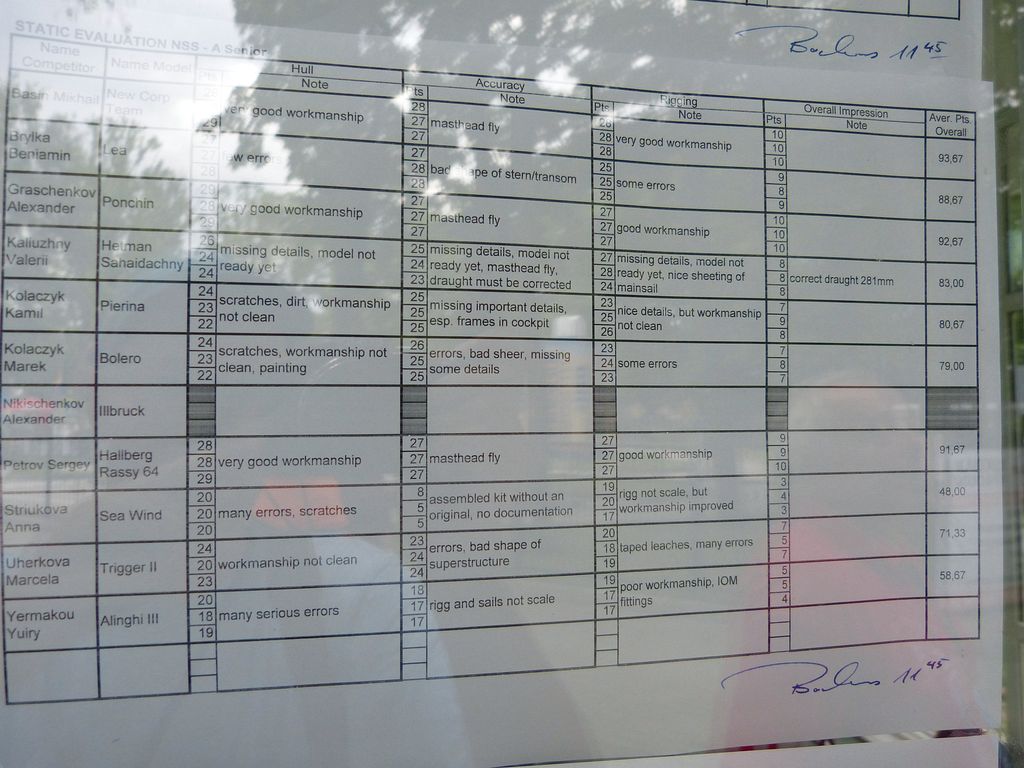 Bachus 11 45
STATIC EVALUATION NSS - A Senior
Name Competitor | Name Model | Hull | Accuracy | Rigging | Overall Impression | Aver. Pts. Overall
Pts | Note | Pts | Note | Pts | Note | Pts | Note
Basin Mikhail | New Corp Team | 28 29 | very good workmanship | 28 27 27 | masthead fly | 28 28 28 | very good workmanship | 10 10 10 | 93,67
Brylka Beniamin | Lea | 27 27 28 | few errors | 27 28 28 | bad shape of stern/transom | 25 25 25 | some errors | 9 8 9 | 88,67
Graschenkov Alexander | Ponchin | 29 28 29 | very good workmanship | 27 27 27 | masthead fly | 27 27 27 | good workmanship | 10 10 10 | 92,67
Kaliuzhny Valerii | Hetman Sahaidachny | 26 24 24 | missing details, model not ready yet | 25 24 23 | missing details, model not ready yet, masthead fly, draught must be corrected | 27 28 24 | missing details, model not ready yet, nice sheeting of mainsail | 8 8 8 | correct draught 281mm | 83,00
Kolaczyk Kamil | Pierina | 24 23 22 | scratches, dirt, workmanship not clean | 25 25 25 | missing important details, esp. frames in cockpit | 23 25 26 | nice details, but workmanship not clean | 7 9 8 | 80,67
Kolaczyk Marek | Bolero | 24 23 22 | scratches, workmanship not clean, painting | 26 25 25 | errors, bad sheer, missing some details | 23 24 23 | some errors | 7 8 7 | 79,00
Nikischenkov Alexander | Illbruck
Petrov Sergey | Hallberg Rassy 64 | 28 28 29 | very good workmanship | 27 27 27 | masthead fly | 27 27 27 | good workmanship | 9 9 10 | 91,67
Striukova Anna | Sea Wind | 20 20 20 | many errors, scratches | 8 5 5 | assembled kit without an original, no documentation | 19 20 17 | rigg not scale, but workmanship improved | 3 4 3 | 48,00
Uherkova Marcela | Trigger II | 24 20 23 | workmanship not clean | 23 24 24 | errors, bad shape of superstructure | 20 18 19 | taped leaches, many errors | 7 5 7 | 71,33
Yermakou Yuiry | Alinghi III | 20 18 19 | many serious errors | 18 17 17 | rigg and sails not scale | 19 17 17 | poor workmanship, IOM fittings | 5 5 4 | 58,67
11 45